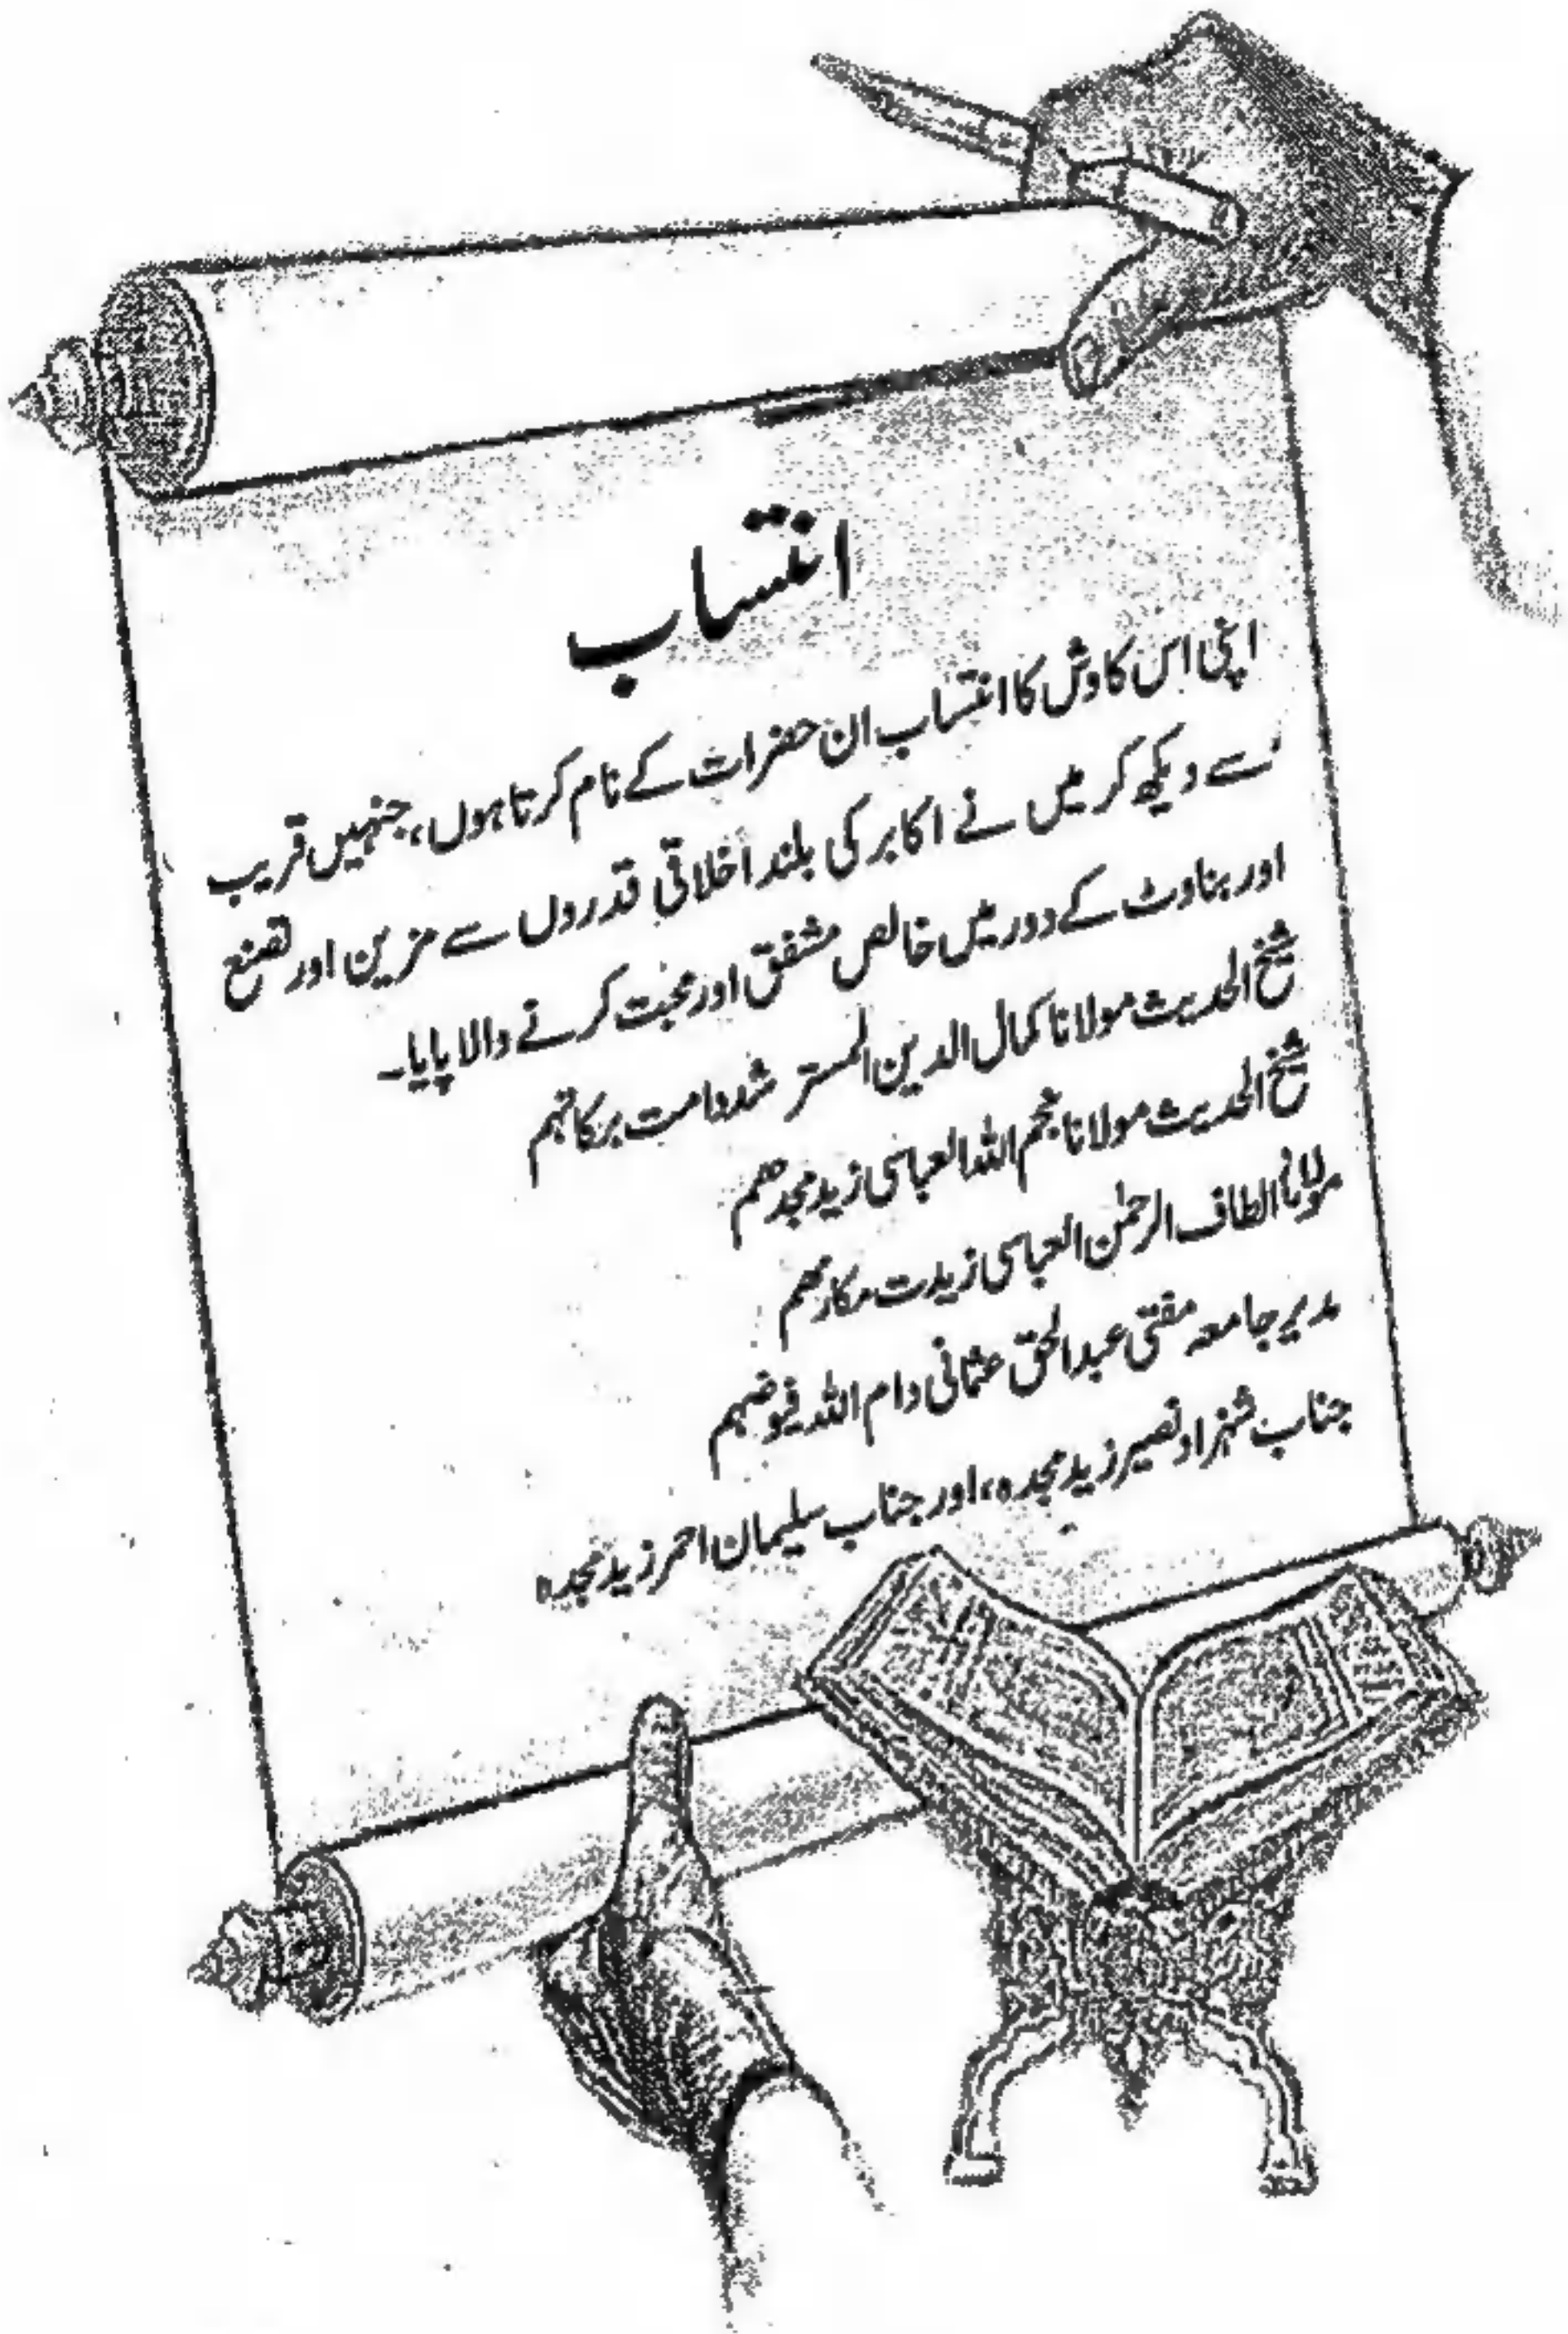 انتساب
اپنی اس کاوش کا انتساب ان حضرات کے نام کرتا ہوں، جنہیں قریب
سے دیکھ کر میں نے اکابر کی بلند اخلاقی قدروں سے مزین اور تصنع
اور بناوٹ کے دور میں خالص مشفق اور محبت کرنے والا پایا۔
شیخ الحدیث مولانا کمال الدین المسترشد دامت برکاتہم
شیخ الحدیث مولانا نجم اللہ العباسی زید مجدھم
مولانا الطاف الرحمٰن العباسی زیدت مکارمھم
مدیر جامعہ مفتی عبدالحق عثمانی دام اللہ فیوضہم
جناب شہزاد نصیر زید مجدہ، اور جناب سلیمان احمر زید مجدہ